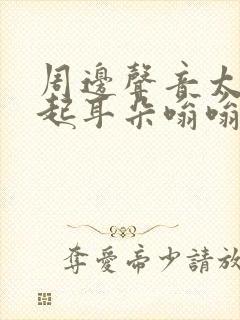 周邊聲音太
起耳朵嗡嗡
奪愛帝少請放